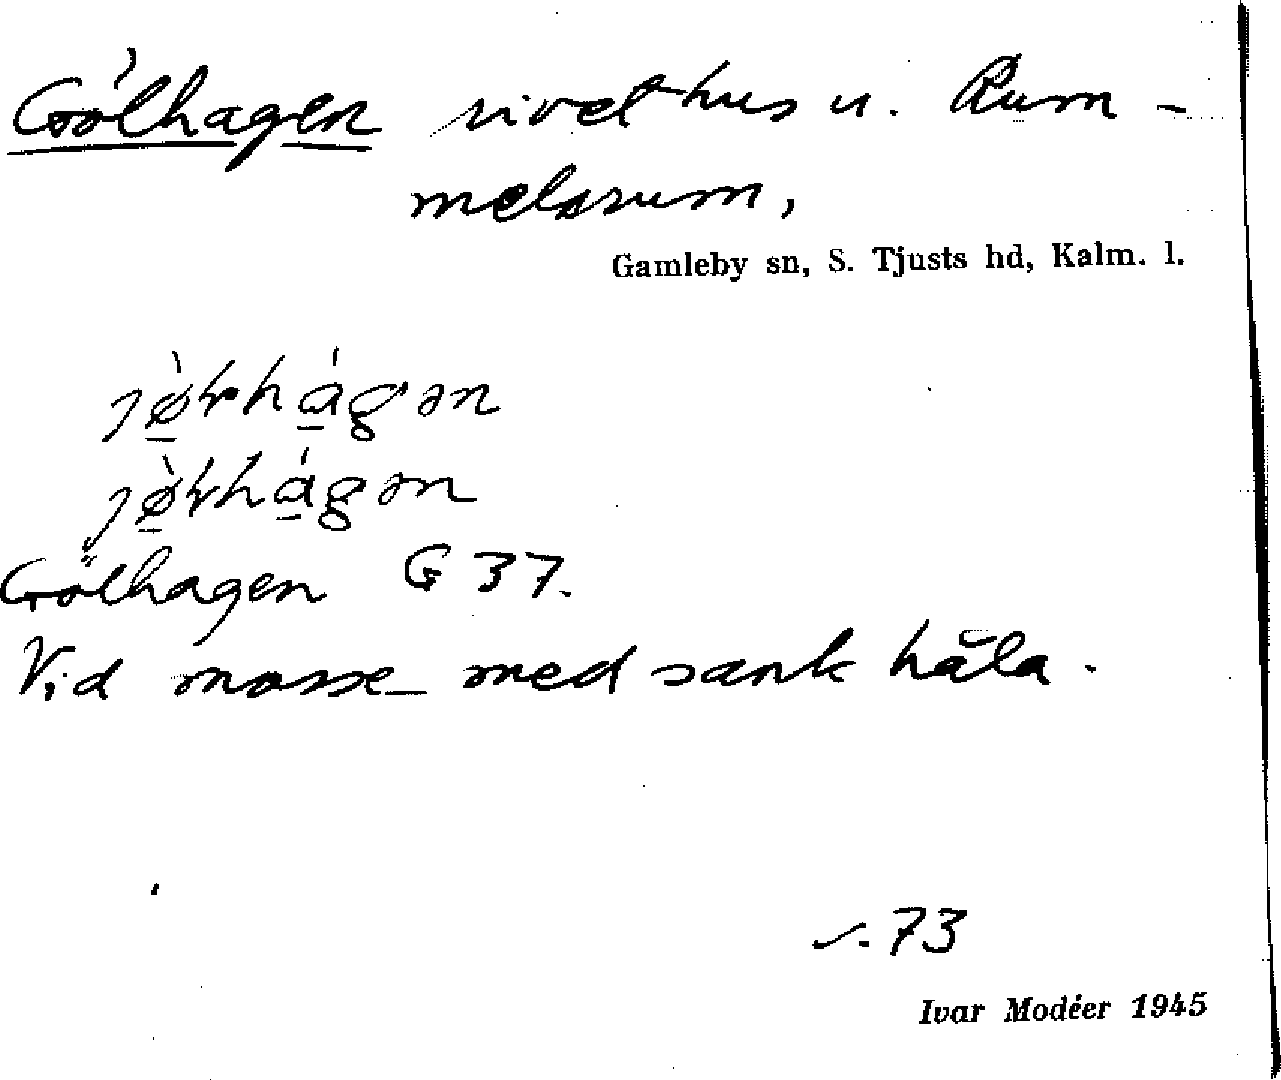 Gölhagen rivet hus u. Rum-
melsrum,
Gamleby sn, S. Tjusts hd, Kalm. l.
Gölhagen G 37.
Vid mosse med sank håla.
s. 73
Ivar Modéer 1945